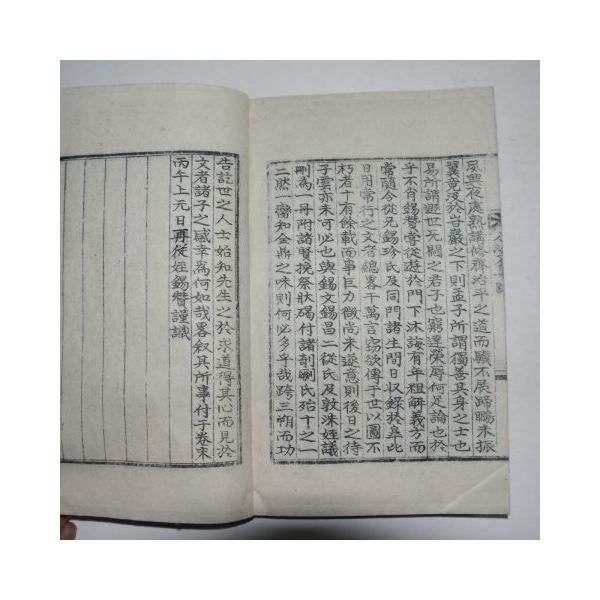 夙興夜處熟講修齊治平之道而驥不展蹄鵬未振
翼竟沒於岩嚴之下則孟子所謂獨善其身之士也
易所謂遯世无悶之君子也窮達榮辱何足論也於
乎不肖錫贊嘗從遊於門下沐誨有年粗解義方而
常隨令從兄錫珍氏及同門諸生間日收錄於阜比
日用常行之文者總畧千萬言窃欲傳于世以圖不
朽者十有餘載而事巨力微尚未遂意則後日之待
子雲亦未可必也與錫文錫昌二從氏及敦洙姪議
刪為一冊附諸賢挽祭狀碣付諸剞劂氏殆十之一
二然一臠知金鼎之味則何必多乎哉跨三朔而功
告訖世之人士始知先生之於求道得其心而見於
文者諸子之感幸為何如哉畧叙其所事付于卷末
丙午上元日再從姪錫贊謹識